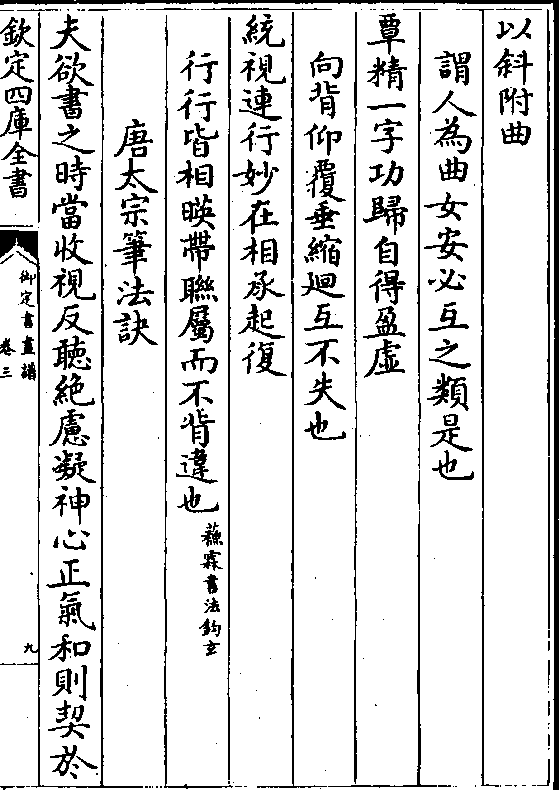 以斜附曲
謂人為曲女安必互之類是也
覃精一字功歸自得盈虛
向背仰覆垂縮廻互不失也
統視連行妙在相承起復
行行皆相暎帶聯屬而不背違也蘇霖書法鈎玄
唐太宗筆法訣
夫欲書之時當收視反聽絶慮凝神心正氣和則契於
欽定四庫全書
御定書畫譜
卷三
九